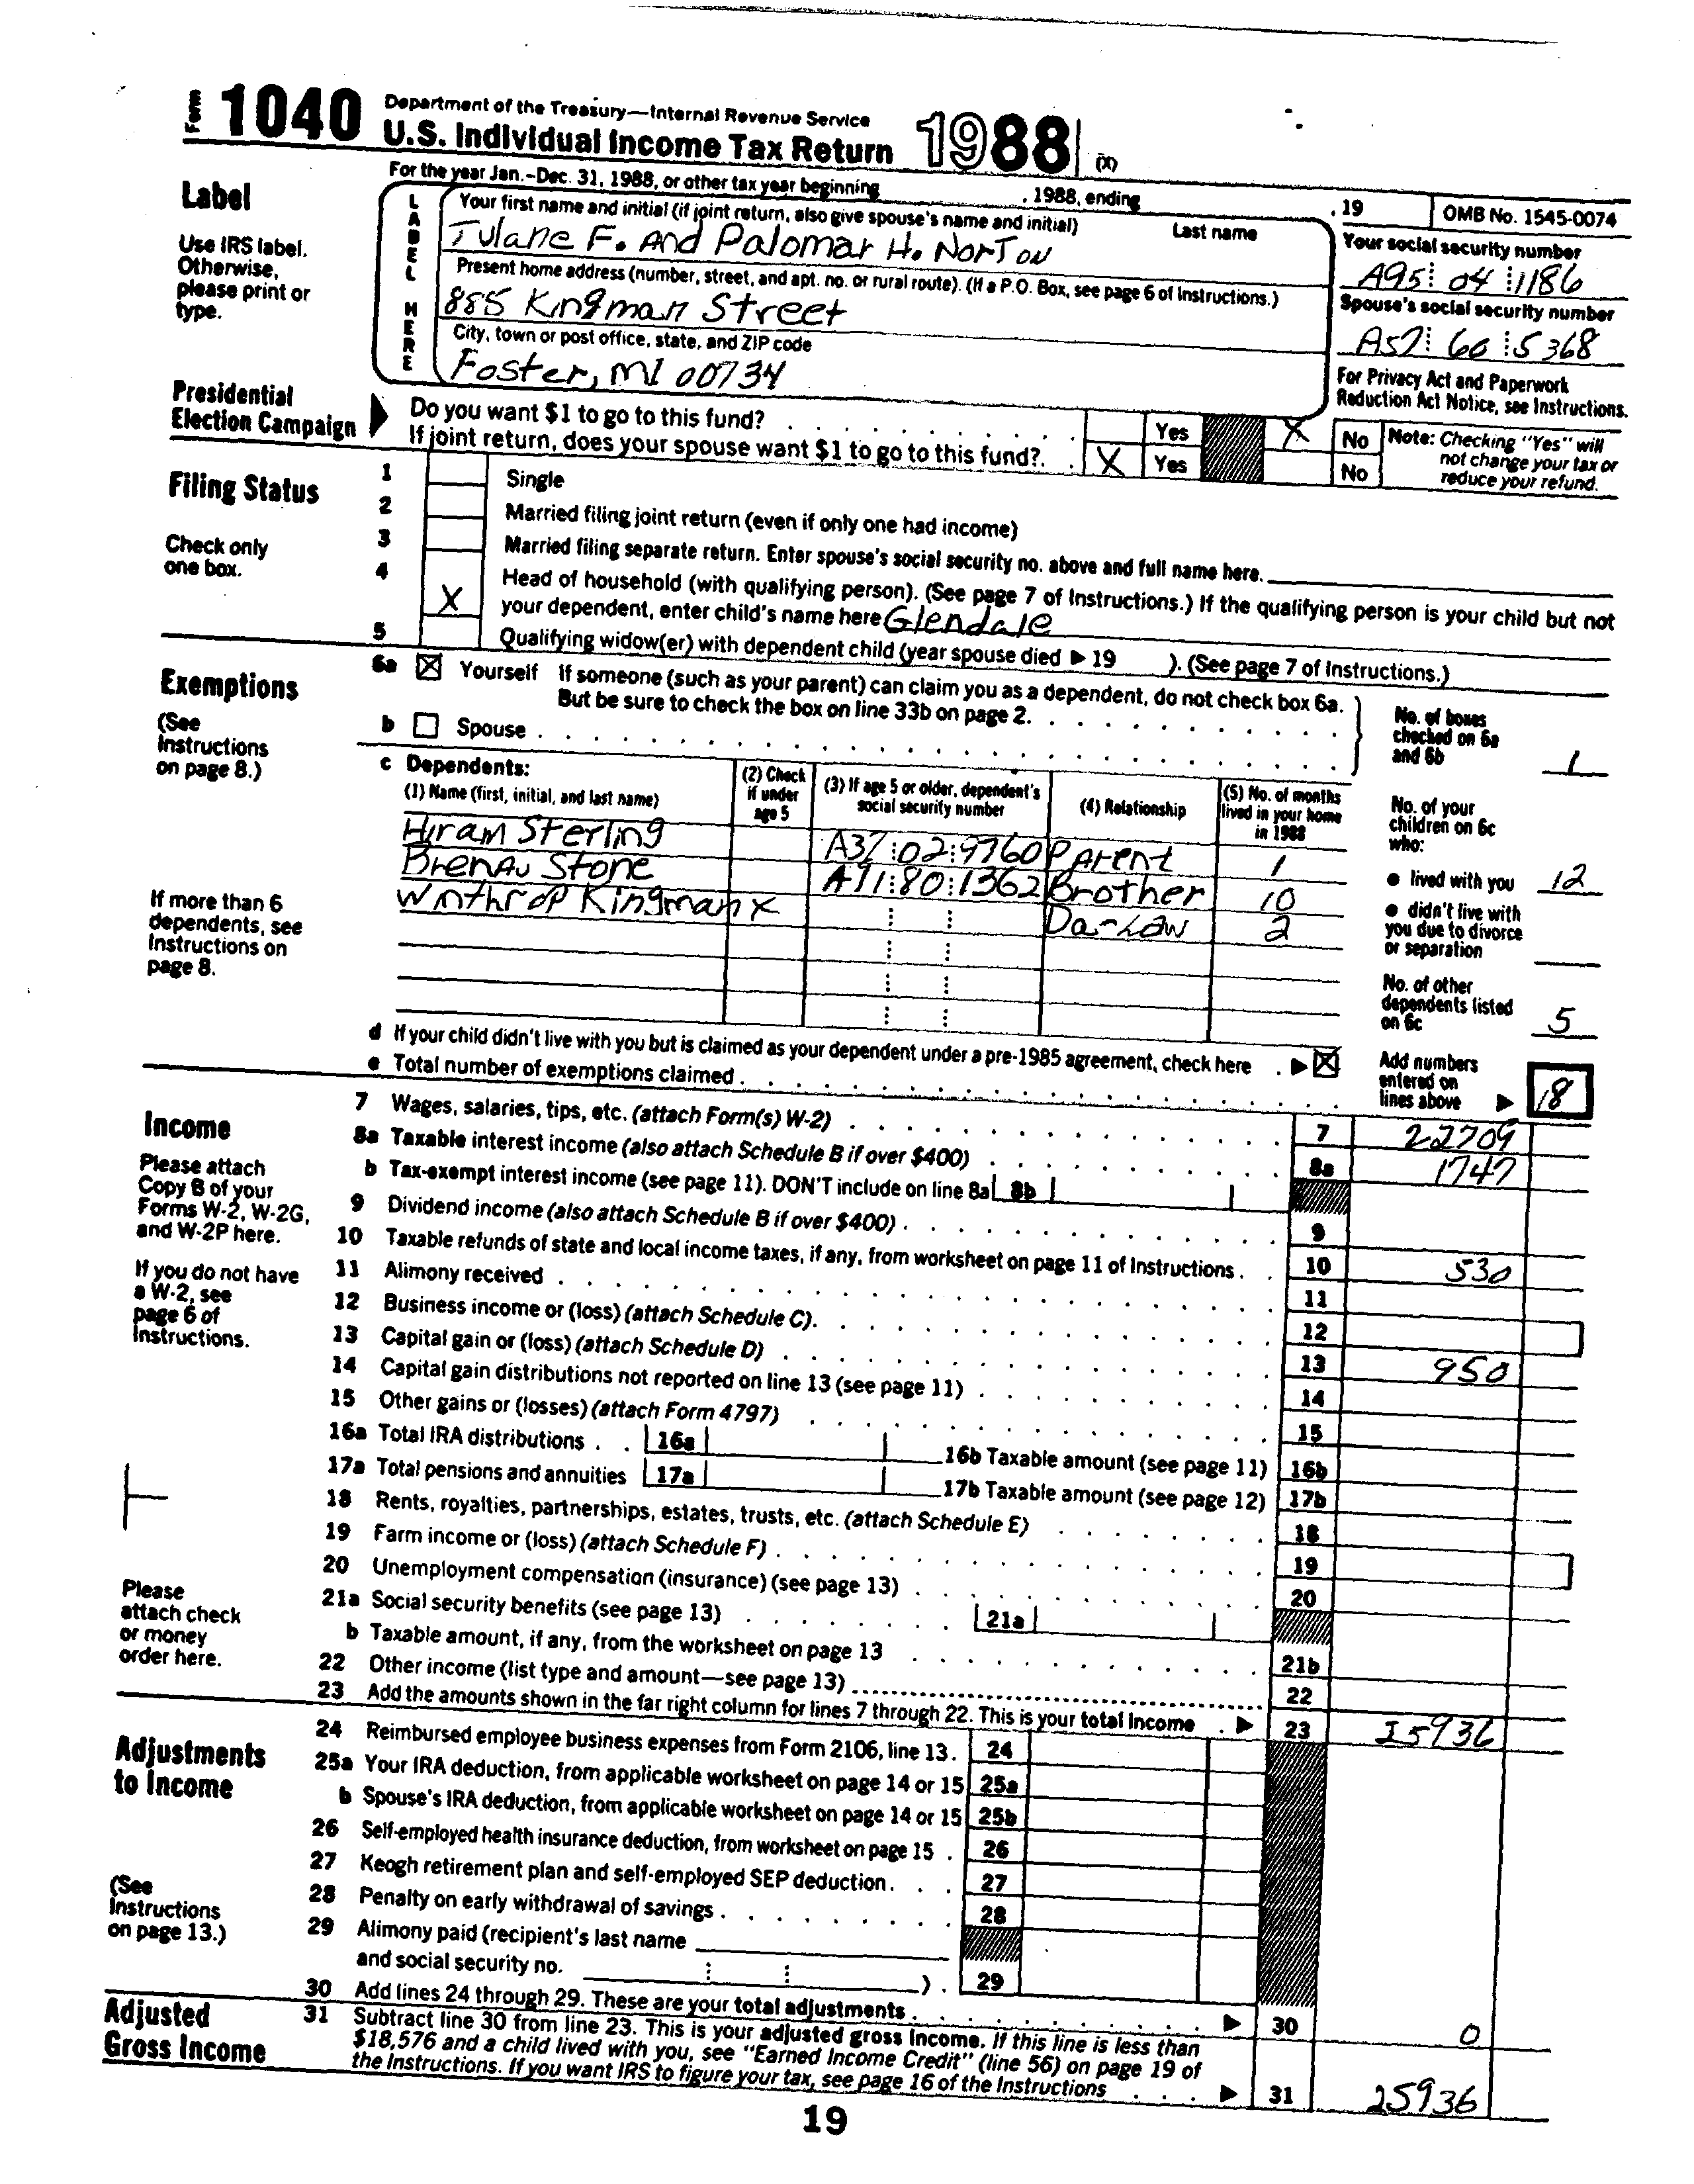 Form 1040 Department of the Treasury—Internal Revenue Service
U.S. Individual Income Tax Return 1988 (X)
For the year Jan.-Dec. 31, 1988, or other tax year beginning , 1988, ending , 19 OMB No. 1545-0074
Label
Use IRS label.
Otherwise,
please print or
type.
LABEL HERE
Your first name and initial (if joint return, also give spouse's name and initial) Last name
Tulane F. And Palomar H. Norton
Your social security number
A95 04 1186
Present home address (number, street, and apt. no. or rural route). (If a P.O. Box, see page 6 of Instructions.)
885 Kingman Street
Spouse's social security number
A57 60 5368
City, town or post office, state, and ZIP code
Foster, MI 00734
For Privacy Act and Paperwork
Reduction Act Notice, see Instructions.
Presidential
Election Campaign
Do you want $1 to go to this fund? Yes X No
If joint return, does your spouse want $1 to go to this fund? X Yes No
Note: Checking "Yes" will
not change your tax or
reduce your refund.
Filing Status
Check only
one box.
1 Single
2 Married filing joint return (even if only one had income)
3 Married filing separate return. Enter spouse's social security no. above and full name here.
4 X Head of household (with qualifying person). (See page 7 of Instructions.) If the qualifying person is your child but not
your dependent, enter child's name here Glendale
5 Qualifying widow(er) with dependent child (year spouse died ▶ 19 ). (See page 7 of Instructions.)
Exemptions
(See
Instructions
on page 8.)
If more than 6
dependents, see
Instructions on
page 8.
6a X Yourself If someone (such as your parent) can claim you as a dependent, do not check box 6a.
But be sure to check the box on line 33b on page 2.
b Spouse
No. of boxes
checked on 6a
and 6b 1
c Dependents:
(1) Name (first, initial, and last name)
(2) Check
if under
age 5
(3) If age 5 or older, dependent's
social security number
(4) Relationship
(5) No. of months
lived in your home
in 1988
Hiram Sterling A37 02 9760 Parent 1
Brenau Stone A91 80 1362 Brother 10
Winthrop Kingman X Da-Law 2
No. of your
children on 6c
who:
● lived with you 12
● didn't live with
you due to divorce
or separation
No. of other
dependents listed
on 6c 5
d If your child didn't live with you but is claimed as your dependent under a pre-1985 agreement, check here ▶ X
e Total number of exemptions claimed
Add numbers
entered on
lines above ▶ 18
Income
Please attach
Copy B of your
Forms W-2, W-2G,
and W-2P here.
If you do not have
a W-2, see
page 6 of
Instructions.
Please
attach check
or money
order here.
7 Wages, salaries, tips, etc. (attach Form(s) W-2) 7 22709
8a Taxable interest income (also attach Schedule B if over $400) 8a 1747
b Tax-exempt interest income (see page 11). DON'T include on line 8a 8b
9 Dividend income (also attach Schedule B if over $400) 9
10 Taxable refunds of state and local income taxes, if any, from worksheet on page 11 of Instructions 10 530
11 Alimony received 11
12 Business income or (loss) (attach Schedule C) 12
13 Capital gain or (loss) (attach Schedule D) 13 950
14 Capital gain distributions not reported on line 13 (see page 11) 14
15 Other gains or (losses) (attach Form 4797) 15
16a Total IRA distributions 16a 16b Taxable amount (see page 11) 16b
17a Total pensions and annuities 17a 17b Taxable amount (see page 12) 17b
18 Rents, royalties, partnerships, estates, trusts, etc. (attach Schedule E) 18
19 Farm income or (loss) (attach Schedule F) 19
20 Unemployment compensation (insurance) (see page 13) 20
21a Social security benefits (see page 13) 21a
b Taxable amount, if any, from the worksheet on page 13 21b
22 Other income (list type and amount—see page 13) 22
23 Add the amounts shown in the far right column for lines 7 through 22. This is your total income ▶ 23 25936
Adjustments
to Income
(See
Instructions
on page 13.)
24 Reimbursed employee business expenses from Form 2106, line 13. 24
25a Your IRA deduction, from applicable worksheet on page 14 or 15 25a
b Spouse's IRA deduction, from applicable worksheet on page 14 or 15 25b
26 Self-employed health insurance deduction, from worksheet on page 15 26
27 Keogh retirement plan and self-employed SEP deduction 27
28 Penalty on early withdrawal of savings 28
29 Alimony paid (recipient's last name
and social security no. ) 29
30 Add lines 24 through 29. These are your total adjustments ▶ 30 0
Adjusted
Gross Income
31 Subtract line 30 from line 23. This is your adjusted gross income. If this line is less than
$18,576 and a child lived with you, see "Earned Income Credit" (line 56) on page 19 of
the Instructions. If you want IRS to figure your tax, see page 16 of the Instructions ▶ 31 25936
19